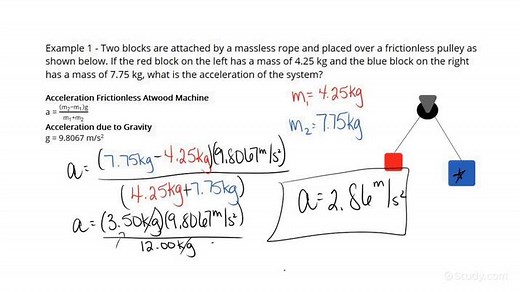 Example 1 - Two blocks are attached by a massless rope and placed over a frictionless pulley as
shown below. If the red block on the left has a mass of 4.25 kg and the blue block on the right
has a mass of 7.75 kg, what is the acceleration of the system?
Acceleration Frictionless Atwood Machine
a = (m₂−m₁)g
m₁+m₂
Acceleration due to Gravity
g = 9.8067 m/s²
m₁=4.25kg
m₂=7.75kg
a= (7.75kg-4.25kg)(9.8067m/s²)
(4.25kg+7.75kg)
a= (3.50kg)(9.8067m/s²)
12.00kg
a=2.86m/s²
Study.com